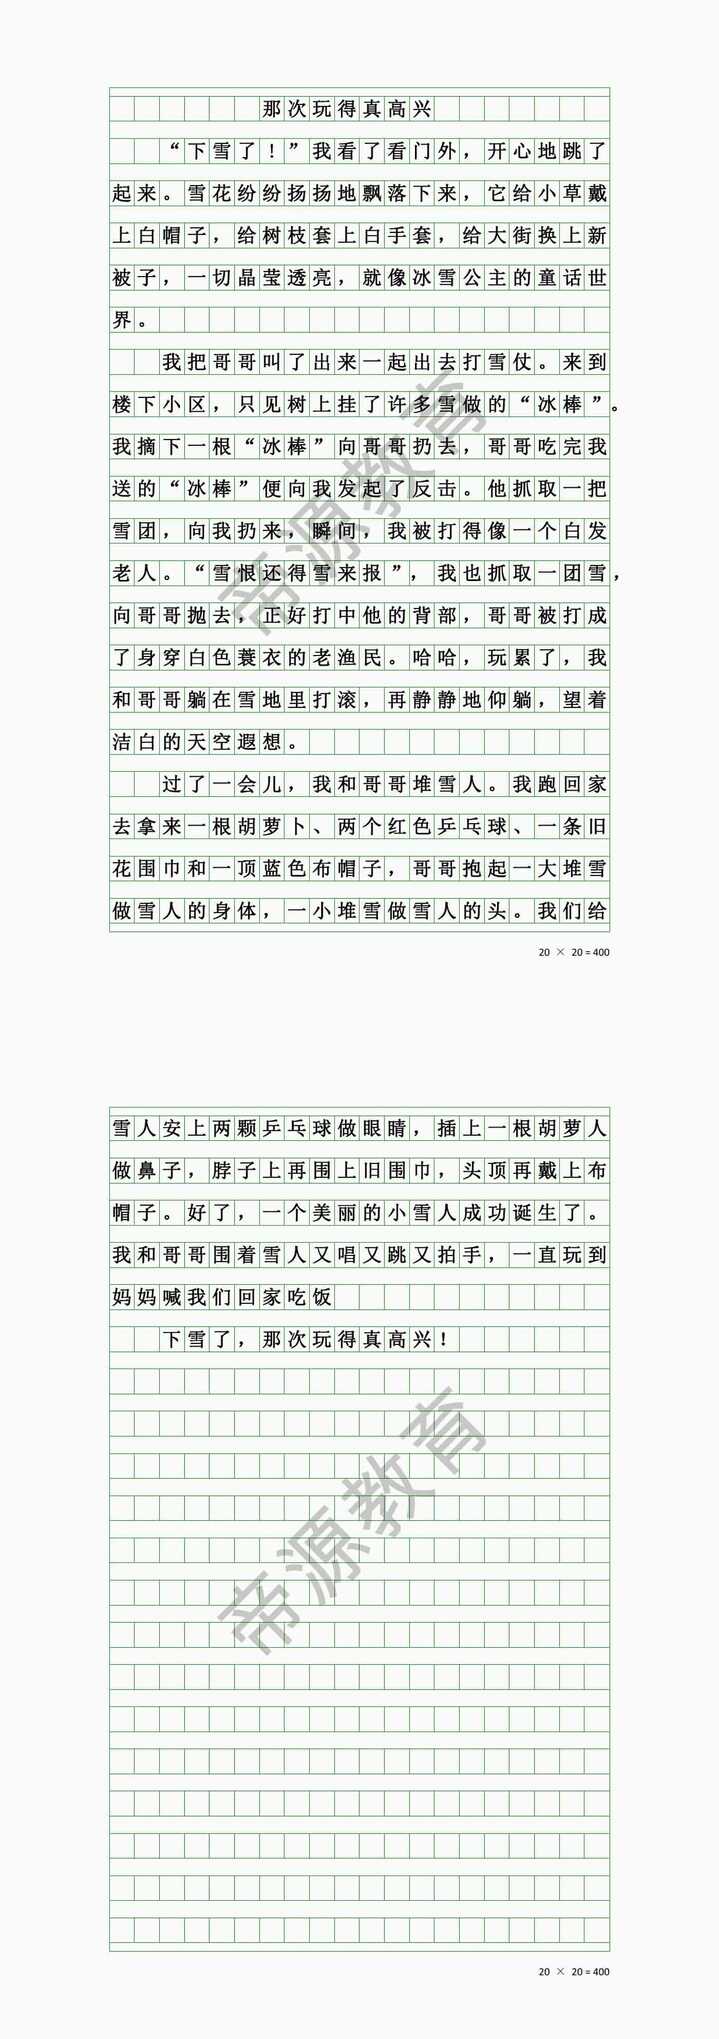 那次玩得真高兴
“下雪了！”我看了看门外，开心地跳了
起来。雪花纷纷扬扬地飘落下来，它给小草戴
上白帽子，给树枝套上白手套，给大街换上新
被子，一切晶莹透亮，就像冰雪公主的童话世
界。
我把哥哥叫了出来一起出去打雪仗。来到
楼下小区，只见树上挂了许多雪做的“冰棒”。
我摘下一根“冰棒”向哥哥扔去，哥哥吃完我
送的“冰棒”便向我发起了反击。他抓取一把
雪团，向我扔来，瞬间，我被打得像一个白发
老人。“雪恨还得雪来报”，我也抓取一团雪，
向哥哥抛去，正好打中他的背部，哥哥被打成
了身穿白色蓑衣的老渔民。哈哈，玩累了，我
和哥哥躺在雪地里打滚，再静静地仰躺，望着
洁白的天空遐想。
过了一会儿，我和哥哥堆雪人。我跑回家
去拿来一根胡萝卜、两个红色乒乓球、一条旧
花围巾和一顶蓝色布帽子，哥哥抱起一大堆雪
做雪人的身体，一小堆雪做雪人的头。我们给
20 × 20 = 400
雪人安上两颗乒乓球做眼睛，插上一根胡萝人
做鼻子，脖子上再围上旧围巾，头顶再戴上布
帽子。好了，一个美丽的小雪人成功诞生了。
我和哥哥围着雪人又唱又跳又拍手，一直玩到
妈妈喊我们回家吃饭
下雪了，那次玩得真高兴！
20 × 20 = 400
帝源教育
帝源教育